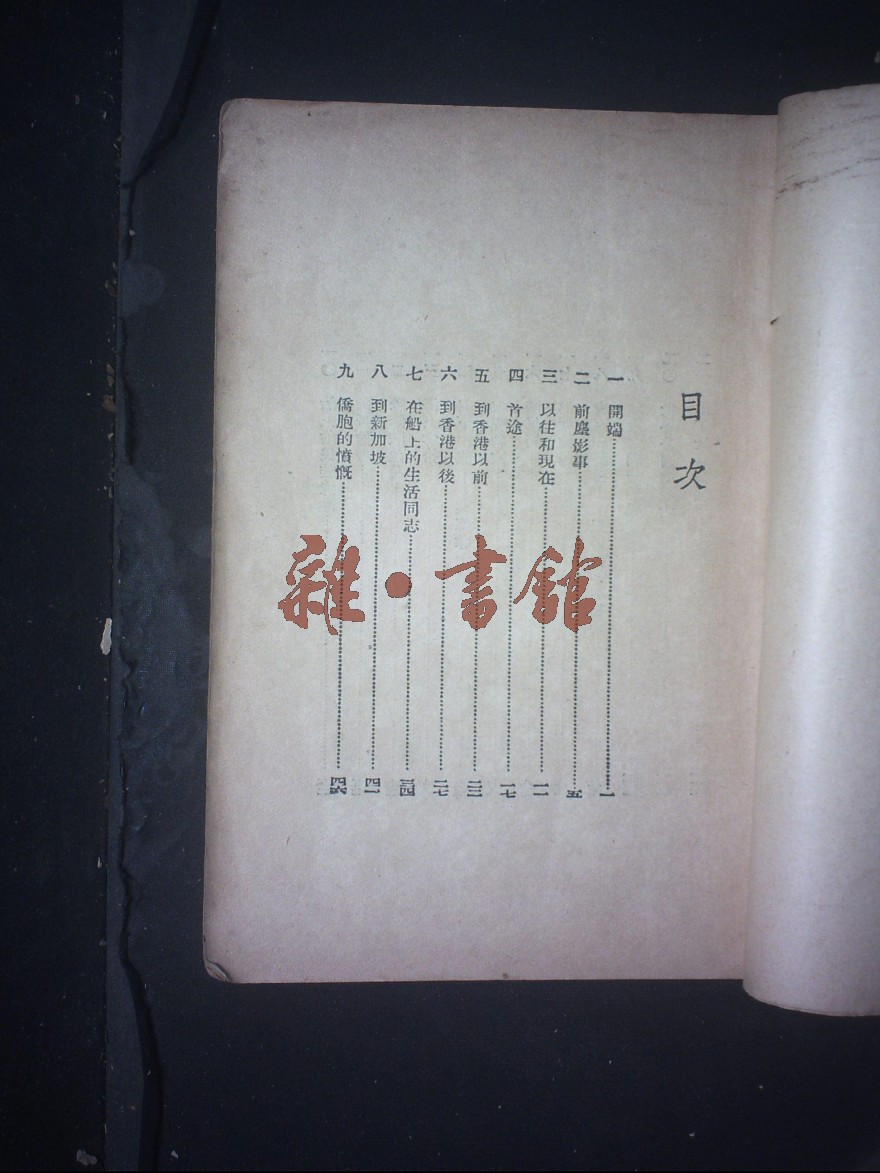 目次
一 開端 一
二 前塵影事 五
三 以往和現在 一一
四 首途 一七
五 到香港以前 二二
六 到香港以後 二七
七 在船上的生活同志 三四
八 到新加坡 四一
九 僑胞的憤慨 四六
雜·書館